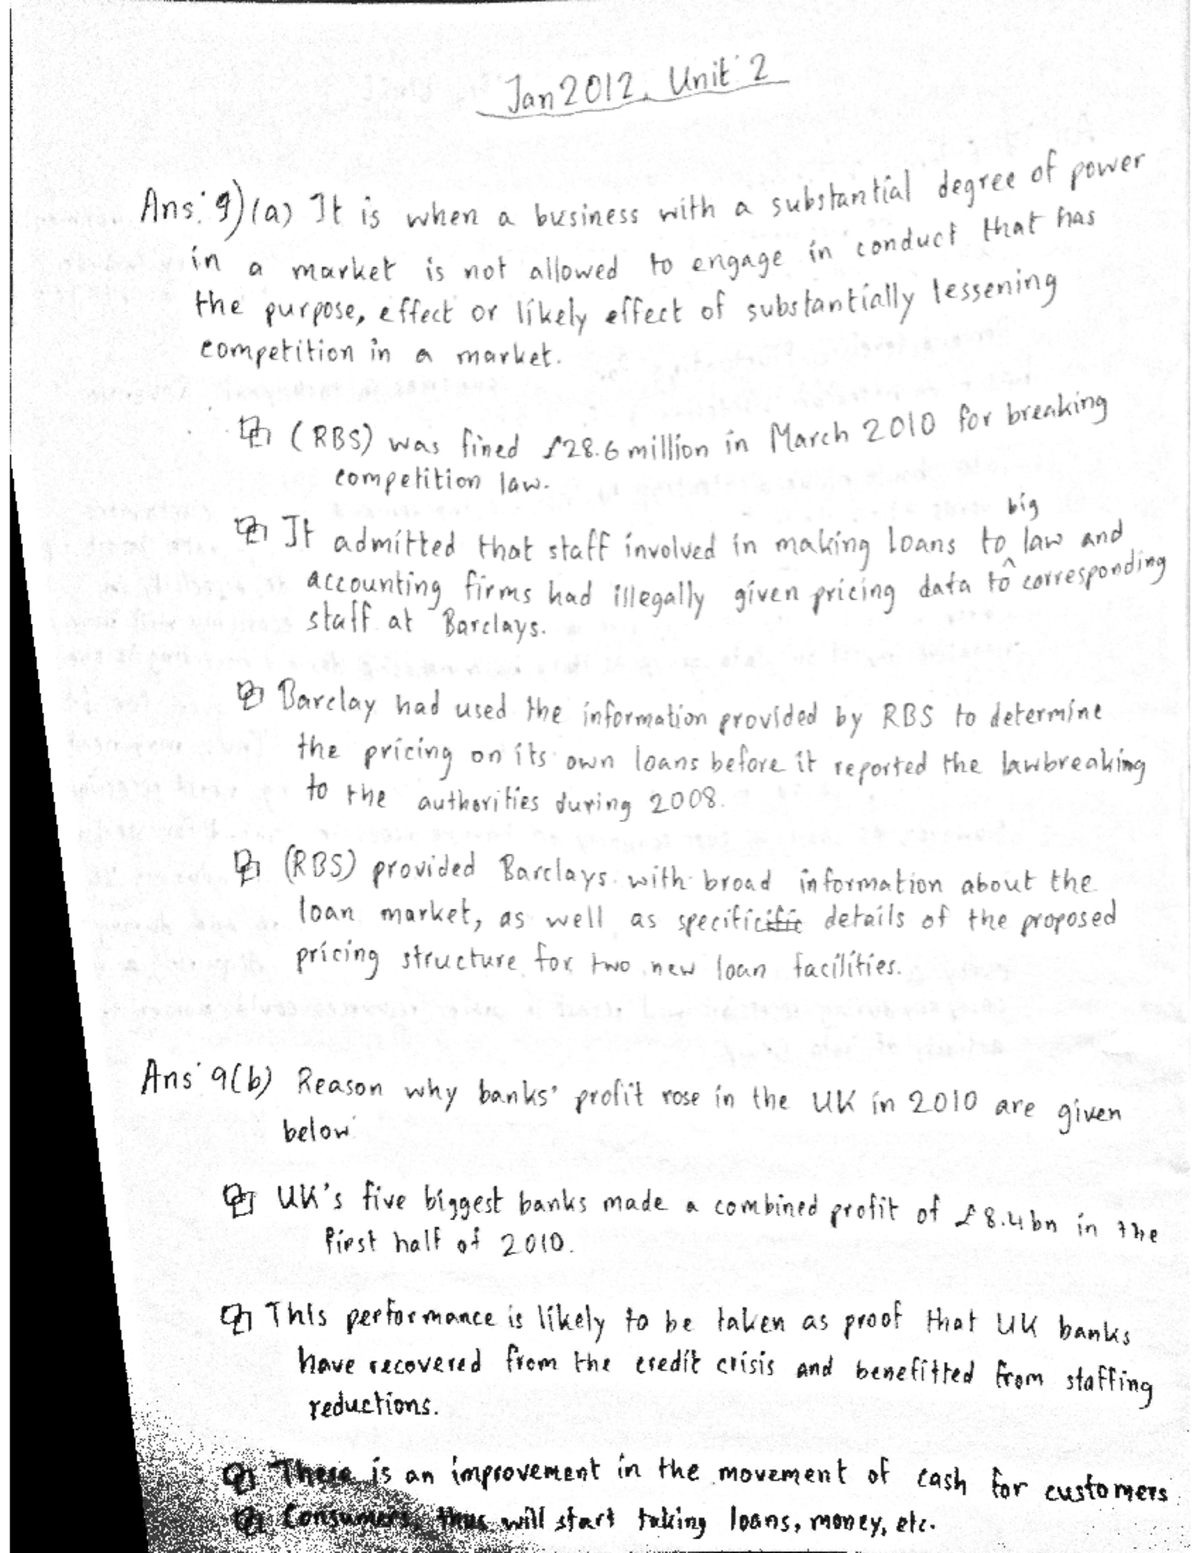 Jan 2012, Unit 2
Ans: 9) (a) It is when a business with a substantial degree of power
in a market is not allowed to engage in conduct that has
the purpose, effect or likely effect of substantially lessening
competition in a market.
(RBS) was fined £28.6 million in March 2010 for breaking
competition law.
big
It admitted that staff involved in making loans to law and
accounting firms had illegally given pricing data to corresponding
staff at Barclays.
Barclay had used the information provided by RBS to determine
the pricing on its own loans before it reported the lawbreaking
to the authorities during 2008.
(RBS) provided Barclays with broad information about the
loan market, as well as specific details of the proposed
pricing structure for two new loan facilities.
Ans 9(b) Reason why banks' profit rose in the UK in 2010 are given
below
UK's five biggest banks made a combined profit of £8.4bn in the
first half of 2010.
This performance is likely to be taken as proof that UK banks
have recovered from the credit crisis and benefitted from staffing
reductions.
There is an improvement in the movement of cash for customers
Consumers, thus will start taking loans, money, etc.